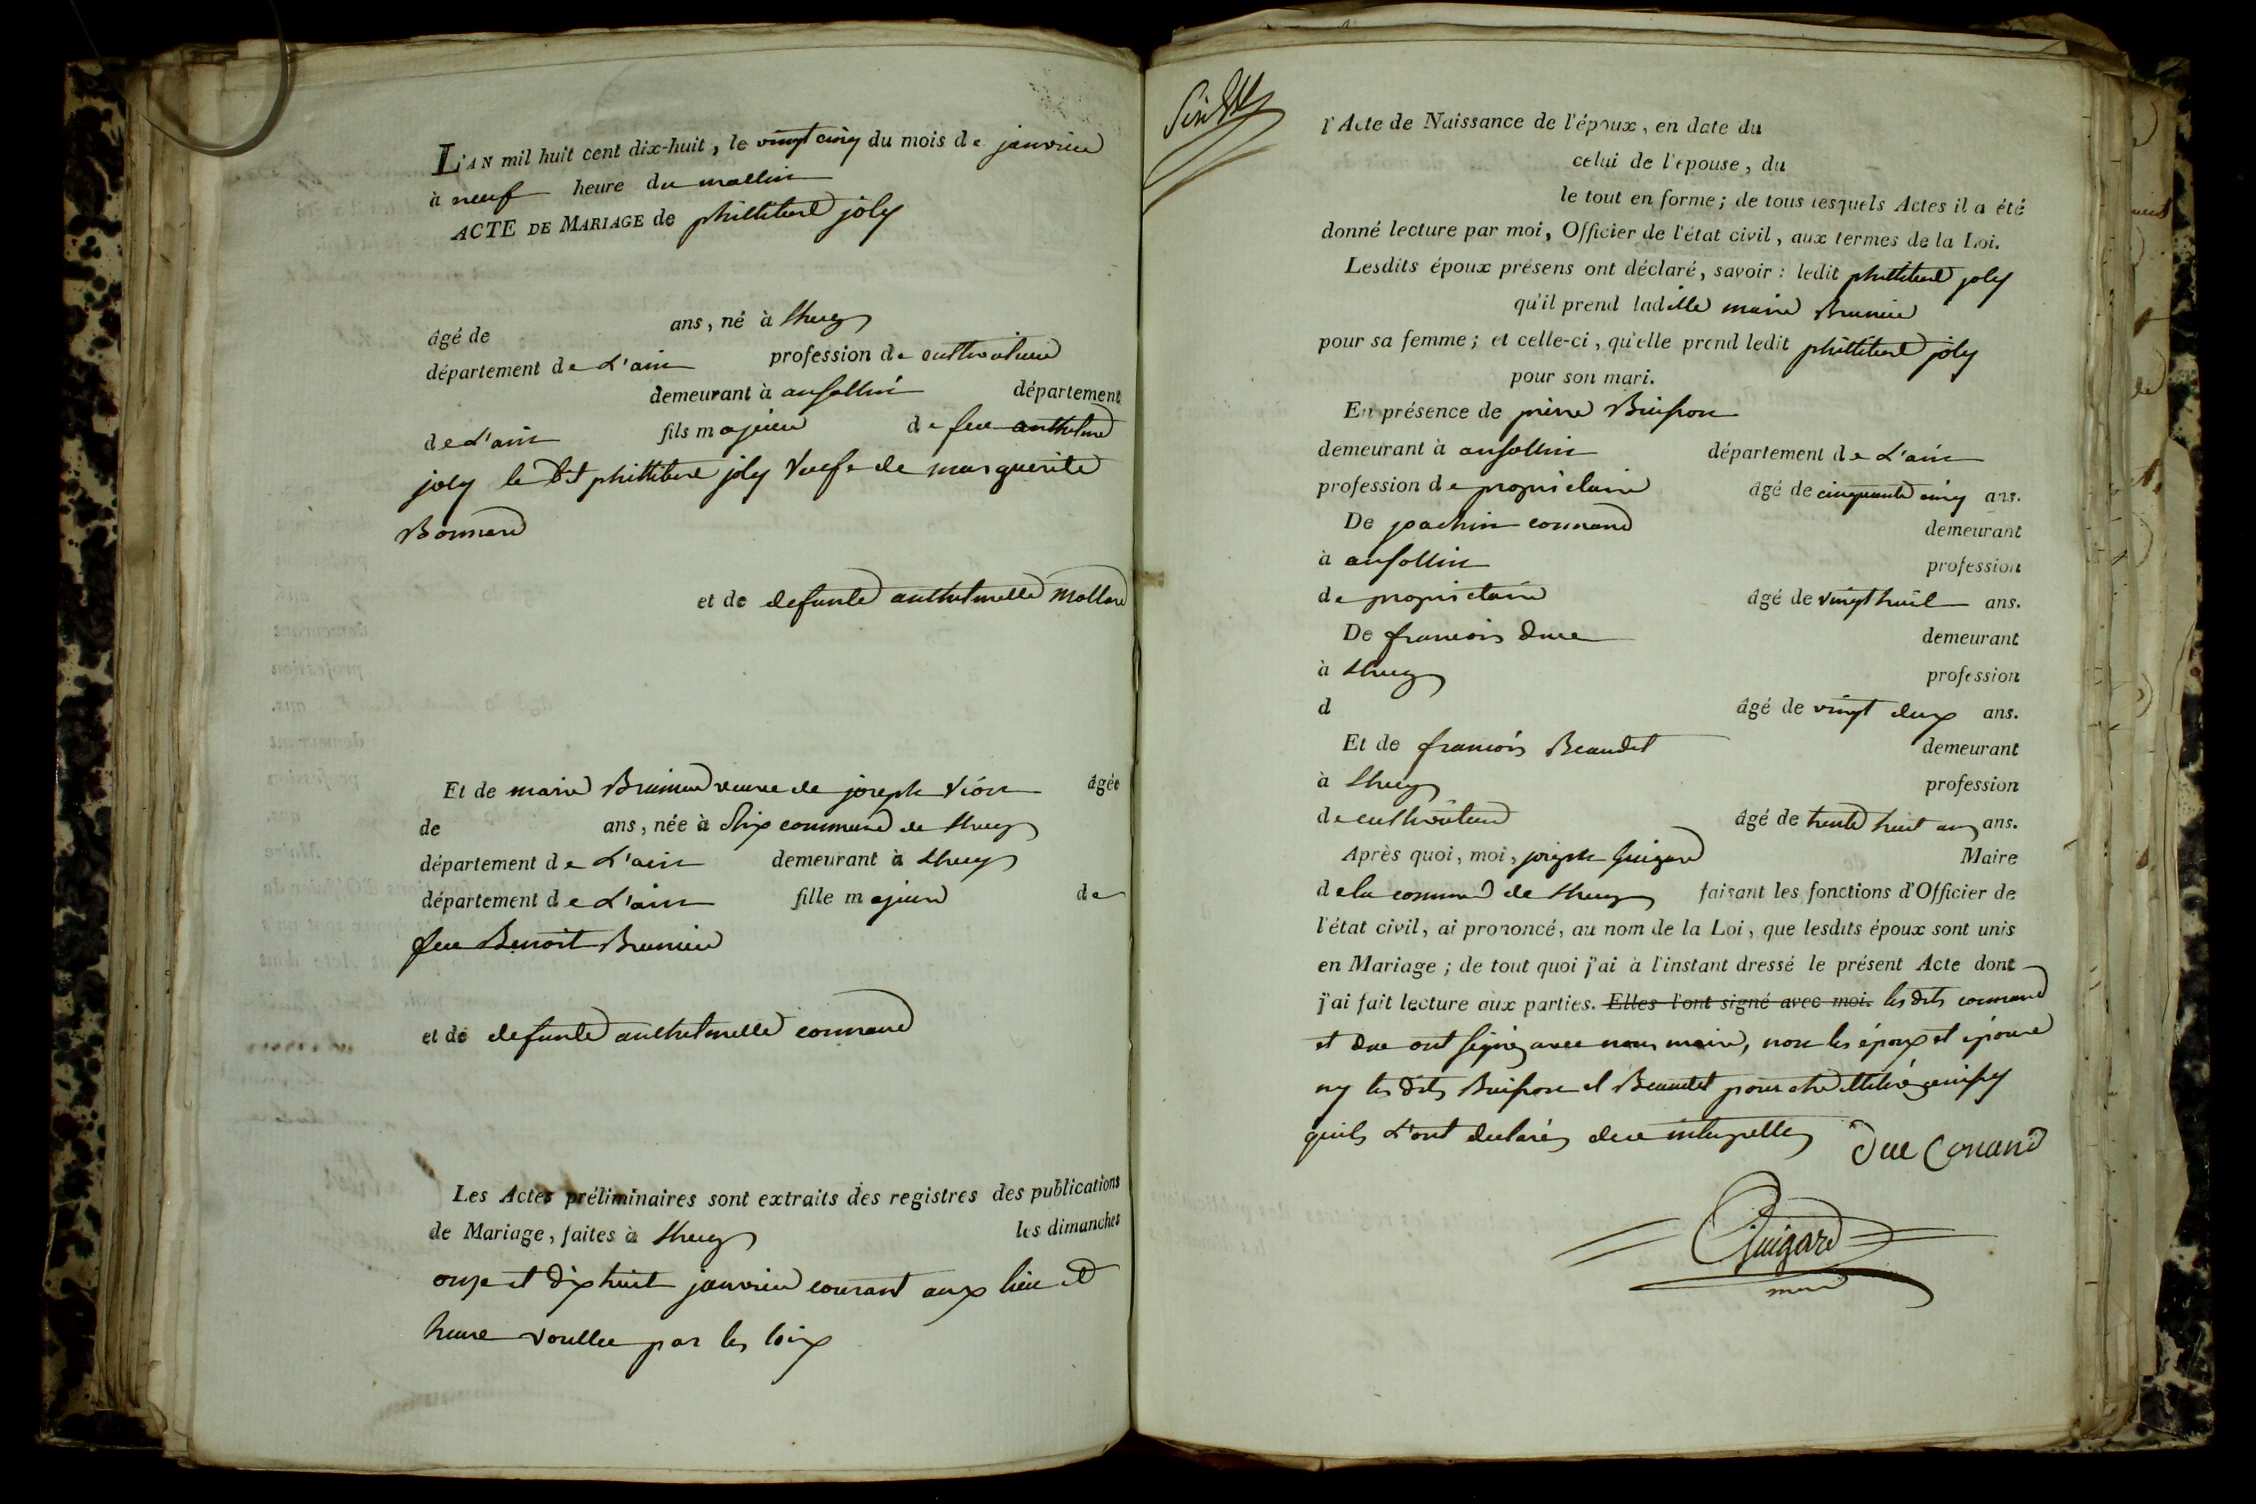 L'AN mil huit cent dix-huit, le vingt cinq du mois de janvier
à neuf heure du mattin
ACTE DE MARIAGE de philibert joly
âgé de ans, né à Lhuy
département de L'ain profession de cultivateur
demeurant à ansollin département
de L'ain fils majeur de feu anthelme
joly le dt philibert joly veuf de marguerite
Bonnard
et de defunte anthelmelle mollard
Et de marie Brunier veuve de joseph Vion âgée
de ans, née à commune de Lhuy
département de L'ain demeurant à Lhuy
département de L'ain fille majeure de
feu Benoit Brunier
et de defunte anthelmelle connand
Les Actes préliminaires sont extraits des registres des publications
de Mariage, faites à Lhuy les dimanches
onze et dix huit janvier courant aux lieu et
heure voullue par les loix
l'Acte de Naissance de l'époux, en date du
celui de l'épouse, du
le tout en forme; de tous lesquels Actes il a été
donné lecture par moi, Officier de l'état civil, aux termes de la Loi.
Lesdits époux présens ont déclaré, savoir: ledit philibert joly
qu'il prend ladille marie Brunier
pour sa femme; et celle-ci, qu'elle prend ledit philibert joly
pour son mari.
En présence de pierre Buisson
demeurant à ansollin département de L'ain
profession de proprietaire âgé de cinquante cinq ans.
De joachin connand demeurant
à ansollin profession
de proprietaire âgé de vingt huit ans.
De francois due demeurant
à Lhuy profession
d âgé de vingt deux ans.
Et de francois Beaudet demeurant
à Lhuy profession
de cultivateur âgé de trente huit ans ans.
Après quoi, moi, joseph Guigard Maire
de la commune de Lhuy faisant les fonctions d'Officier de
l'état civil, ai prononcé, au nom de la Loi, que lesdits époux sont unis
en Mariage; de tout quoi j'ai à l'instant dressé le présent Acte dont
j'ai fait lecture aux parties. Elles l'ont signé avec moi. les dts connand
et due ont signez avec nous maire, non les époux et épouse
ny les dits Buisson et Beaudet pour etre
quils L'ont declarés
due Conand
Guigard
maire